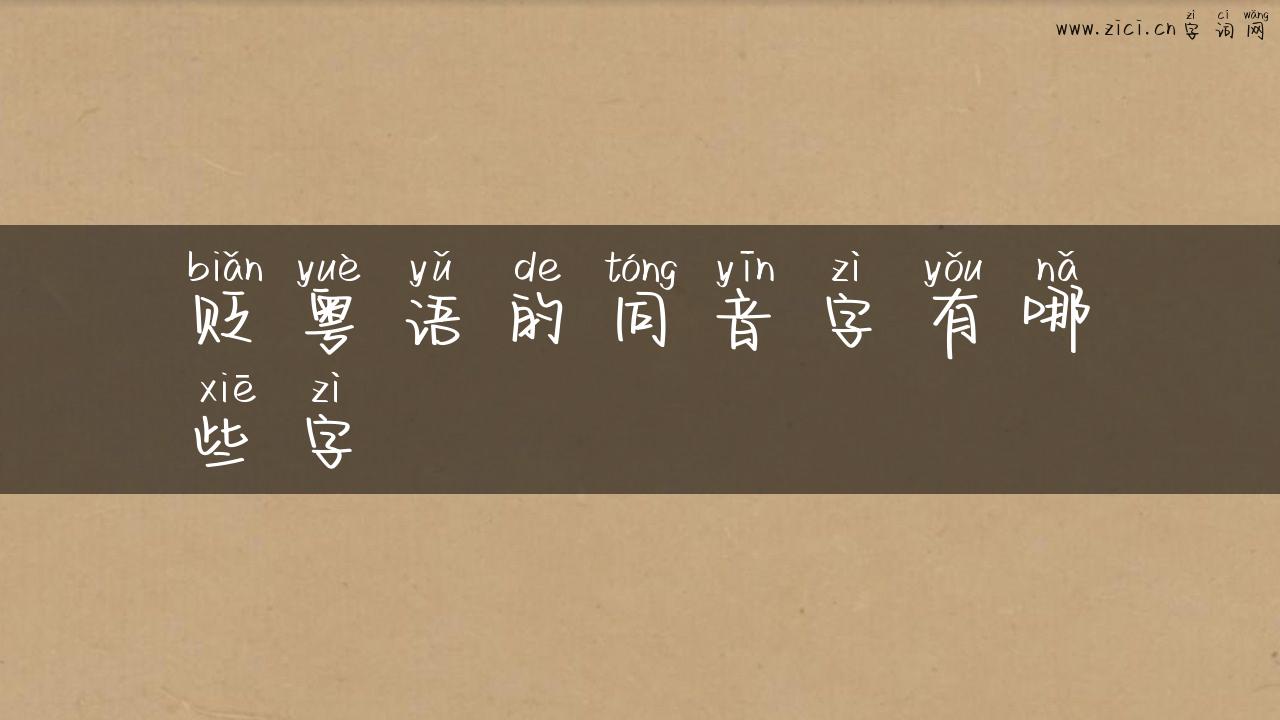 zì cí wǎng
www.zici.cn 字词网
biǎn yuè yǔ de tóng yīn zì yǒu nǎ
贬粤语的同音字有哪
xiē zì
些字